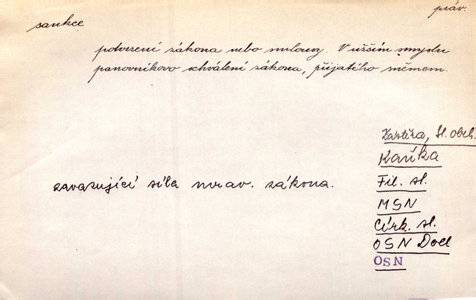 práv.
sankce
potvrzení zákona nebo smlouvy. V užším smyslu
panovníkovo schválení zákona, přijatého sněmem.
zavazující síla mrav. zákona.
Kaňka
Fil. sl.
MSN
Círk. sl.
OSN Dod
OSN